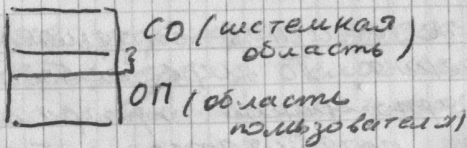 СО (системная
область)
ОП (область
пользователя)